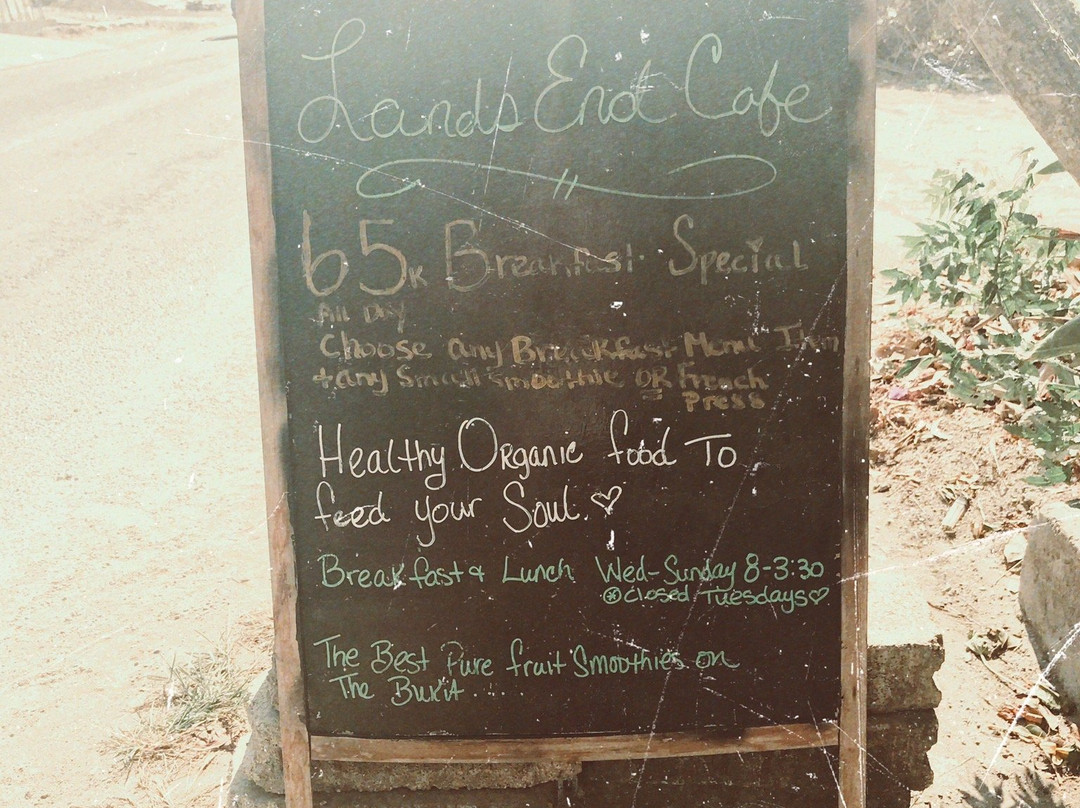 Lands End Cafe
65K Breakfast Special
All Day
Choose any Breakfast Menu Item
+ any Small Smoothie OR French
Press
Healthy Organic food To
feed your Soul. ♡
Breakfast & Lunch Wed-Sunday 8-3:30
⊛ Closed Tuesdays ♡
The Best Pure fruit Smoothies on
The Bukit